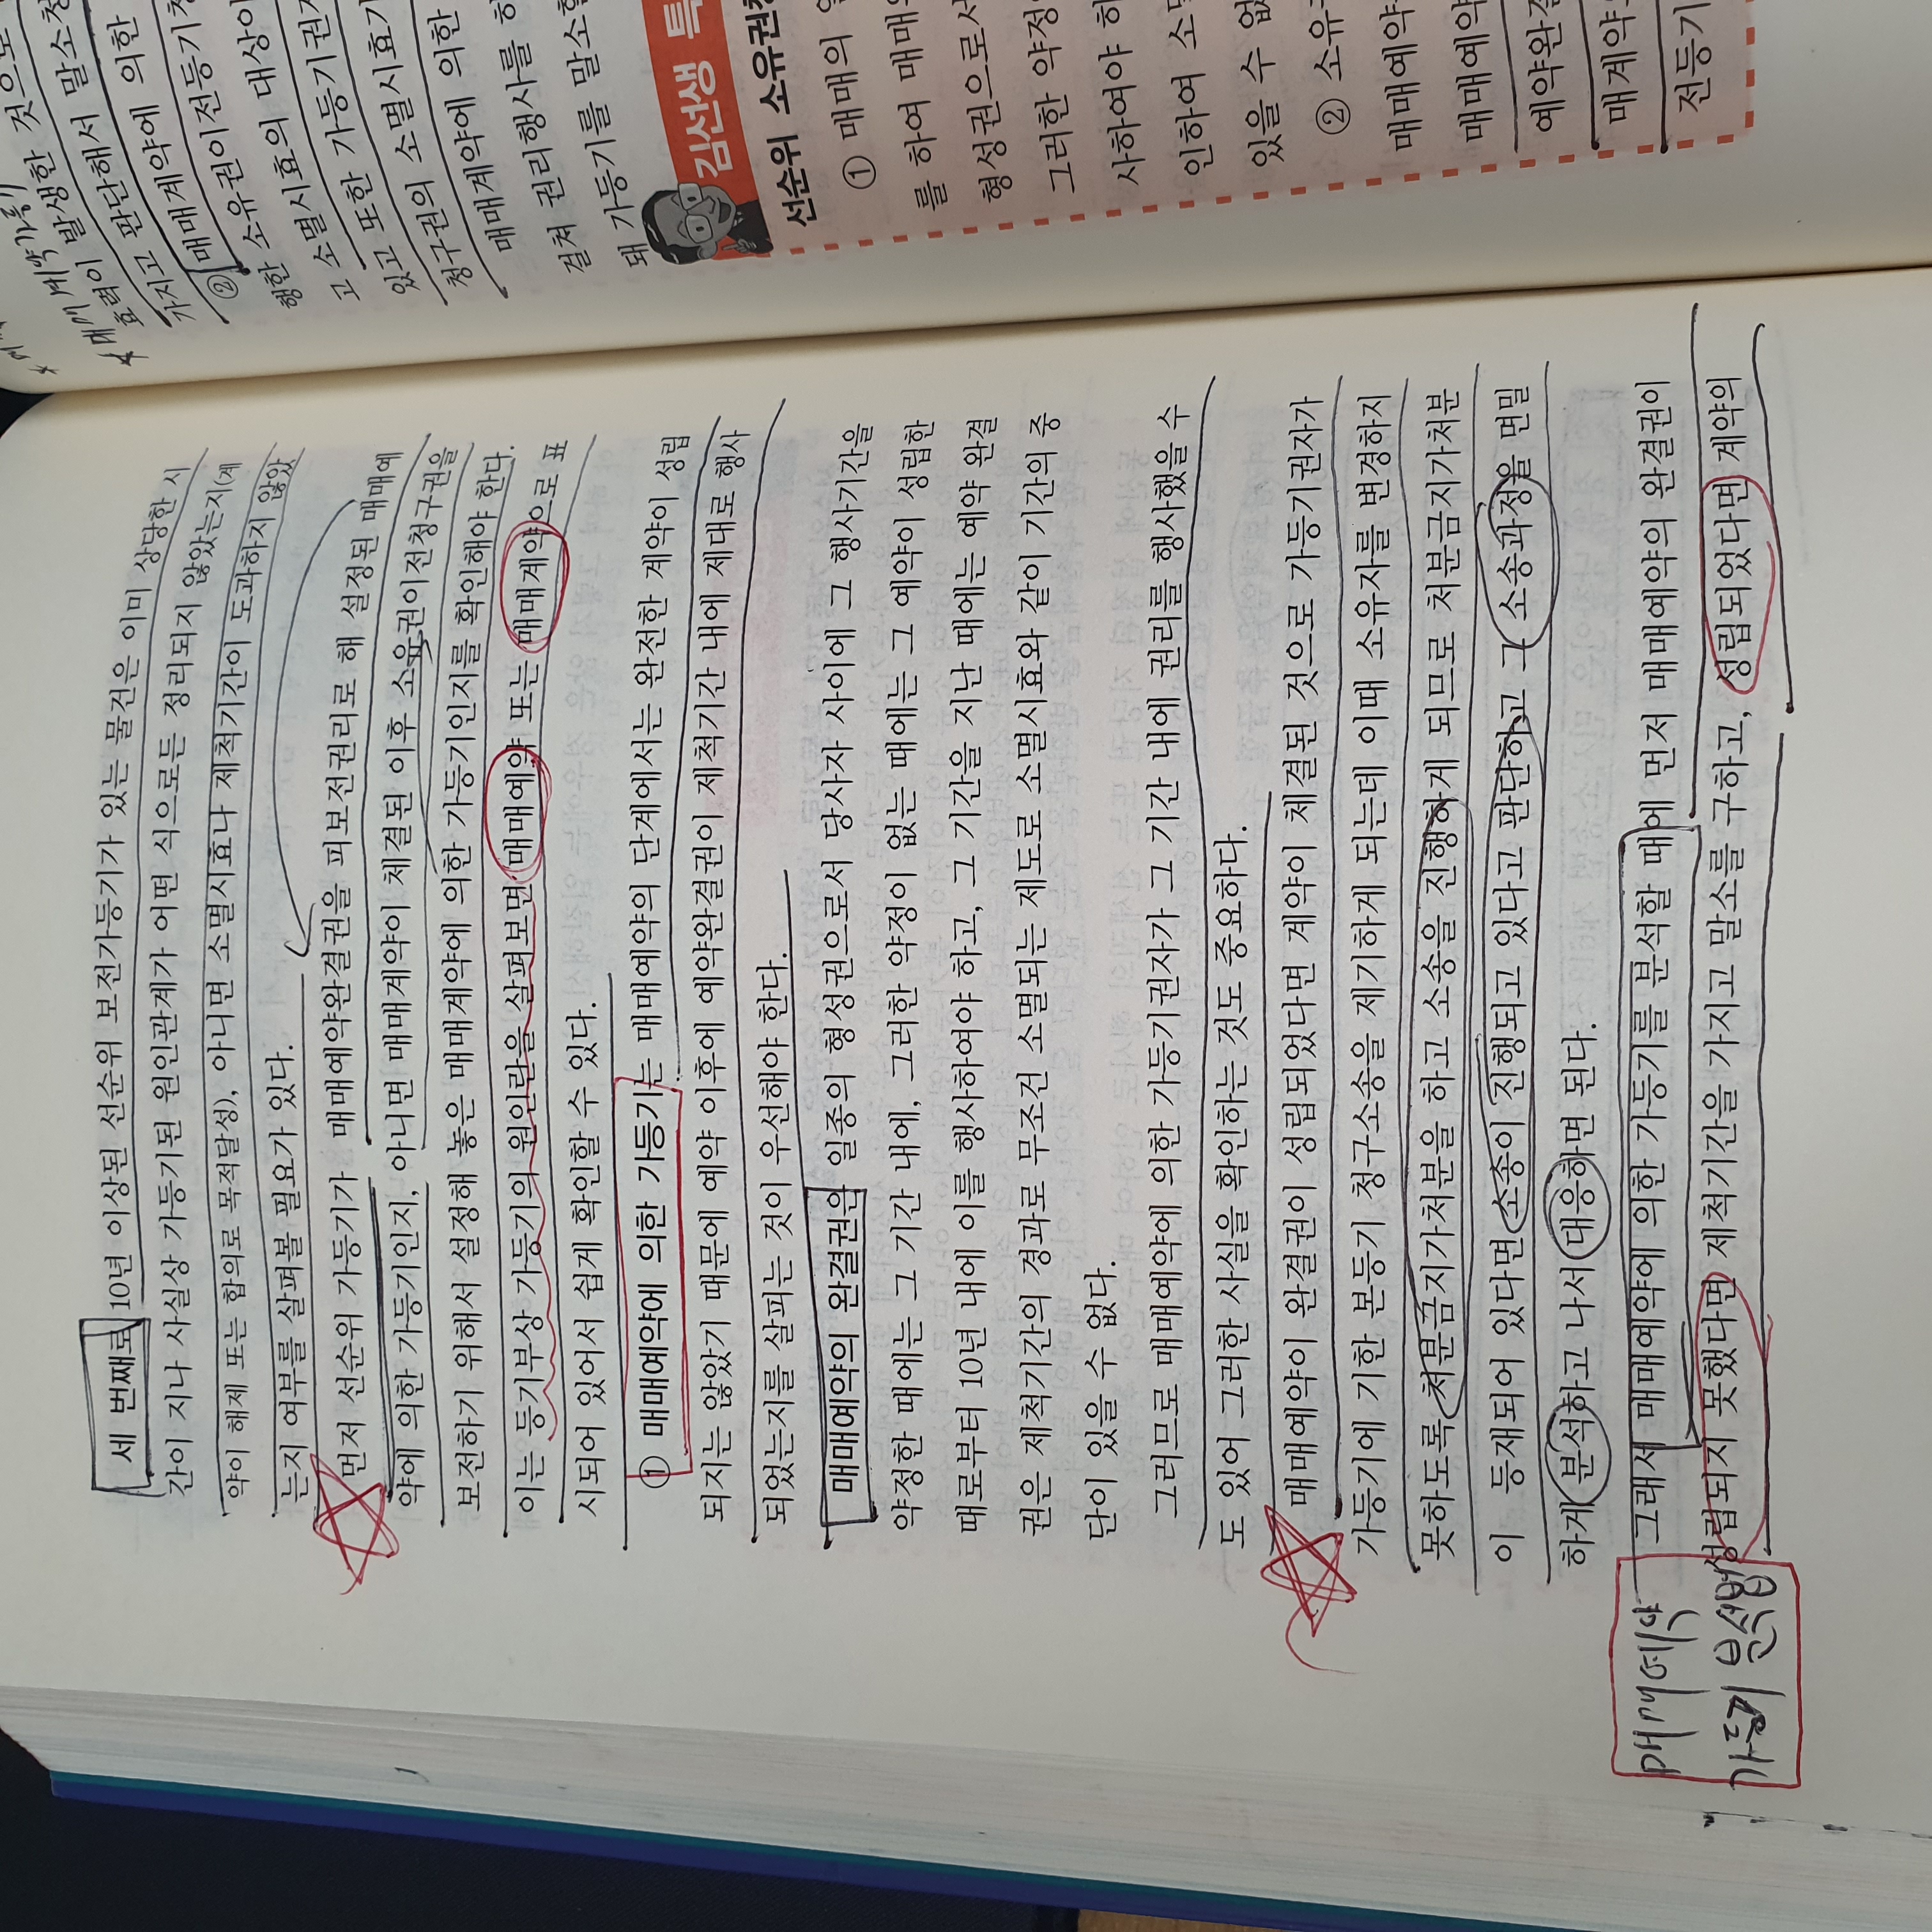 세 번째로 10년 이상된 선순위 보전가등기가 있는 물건은 이미 상당한 시
간이 지나 사실상 가등기된 원인관계가 어떤 식으로든 정리되지 않았는지(계
약이 해제 또는 합의로 목적달성), 아니면 소멸시효나 제척기간이 도과하지 않았
는지 여부를 살펴볼 필요가 있다.
먼저 선순위 가등기가 매매예약완결권을 피보전권리로 해 설정된 매매예
약에 의한 가등기인지, 아니면 매매계약이 체결된 이후 소유권이전청구권을
보전하기 위해서 설정해 놓은 매매계약에 의한 가등기인지를 확인해야 한다.
이는 등기부상 가등기의 원인란을 살펴보면 매매예약 또는 매매계약으로 표
시되어 있어서 쉽게 확인할 수 있다.
① 매매예약에 의한 가등기는 매매예약의 단계에서는 완전한 계약이 성립
되지는 않았기 때문에 예약 이후에 예약완결권이 제척기간 내에 제대로 행사
되었는지를 살피는 것이 우선해야 한다.
매매예약의 완결권은 일종의 형성권으로서 당사자 사이에 그 행사기간을
약정한 때에는 그 기간 내에, 그러한 약정이 없는 때에는 그 예약이 성립한
때로부터 10년 내에 이를 행사하여야 하고, 그 기간을 지난 때에는 예약 완결
권은 제척기간의 경과로 무조건 소멸되는 제도로 소멸시효와 같이 기간의 중
단이 있을 수 없다.
그러므로 매매예약에 의한 가등기권자가 그 기간 내에 권리를 행사했을 수
도 있어 그러한 사실을 확인하는 것도 중요하다.
매매예약이 완결권이 성립되었다면 계약이 체결된 것으로 가등기권자가
가등기에 기한 본등기 청구소송을 제기하게 되는데 이때 소유자를 변경하지
못하도록 처분금지가처분을 하고 소송을 진행하게 되므로 처분금지가처분
이 등재되어 있다면 소송이 진행되고 있다고 판단하고 그 소송과정을 면밀
하게 분석하고 나서 대응하면 된다.
그래서 매매예약에 의한 가등기를 분석할 때에 먼저 매매예약의 완결권이
성립되지 못했다면 제척기간을 가지고 말소를 구하고, 성립되었다면 계약의
매매예약
가등기 분석법
매매계약가등기
것으로
효력이 발생한
가지고 판단해서 말소청
② 매매계약에 의한
소유권이전등기청
행한 소유의 대상이
고 소멸시효의
있고 또한 가등기권자
청구권의 소멸시효기
매매계약에 의한
걸쳐 권리행사를 하
돼 가등기를 말소할
김선생 특
선순위 소유권청
① 매매의 일
를 하여 매매의
형성권으로서
그러한 약정이
사하여야 하
인하여 소멸
있을 수 없
② 소유
매매예약
매매예약
예약완결
매계약
전등기